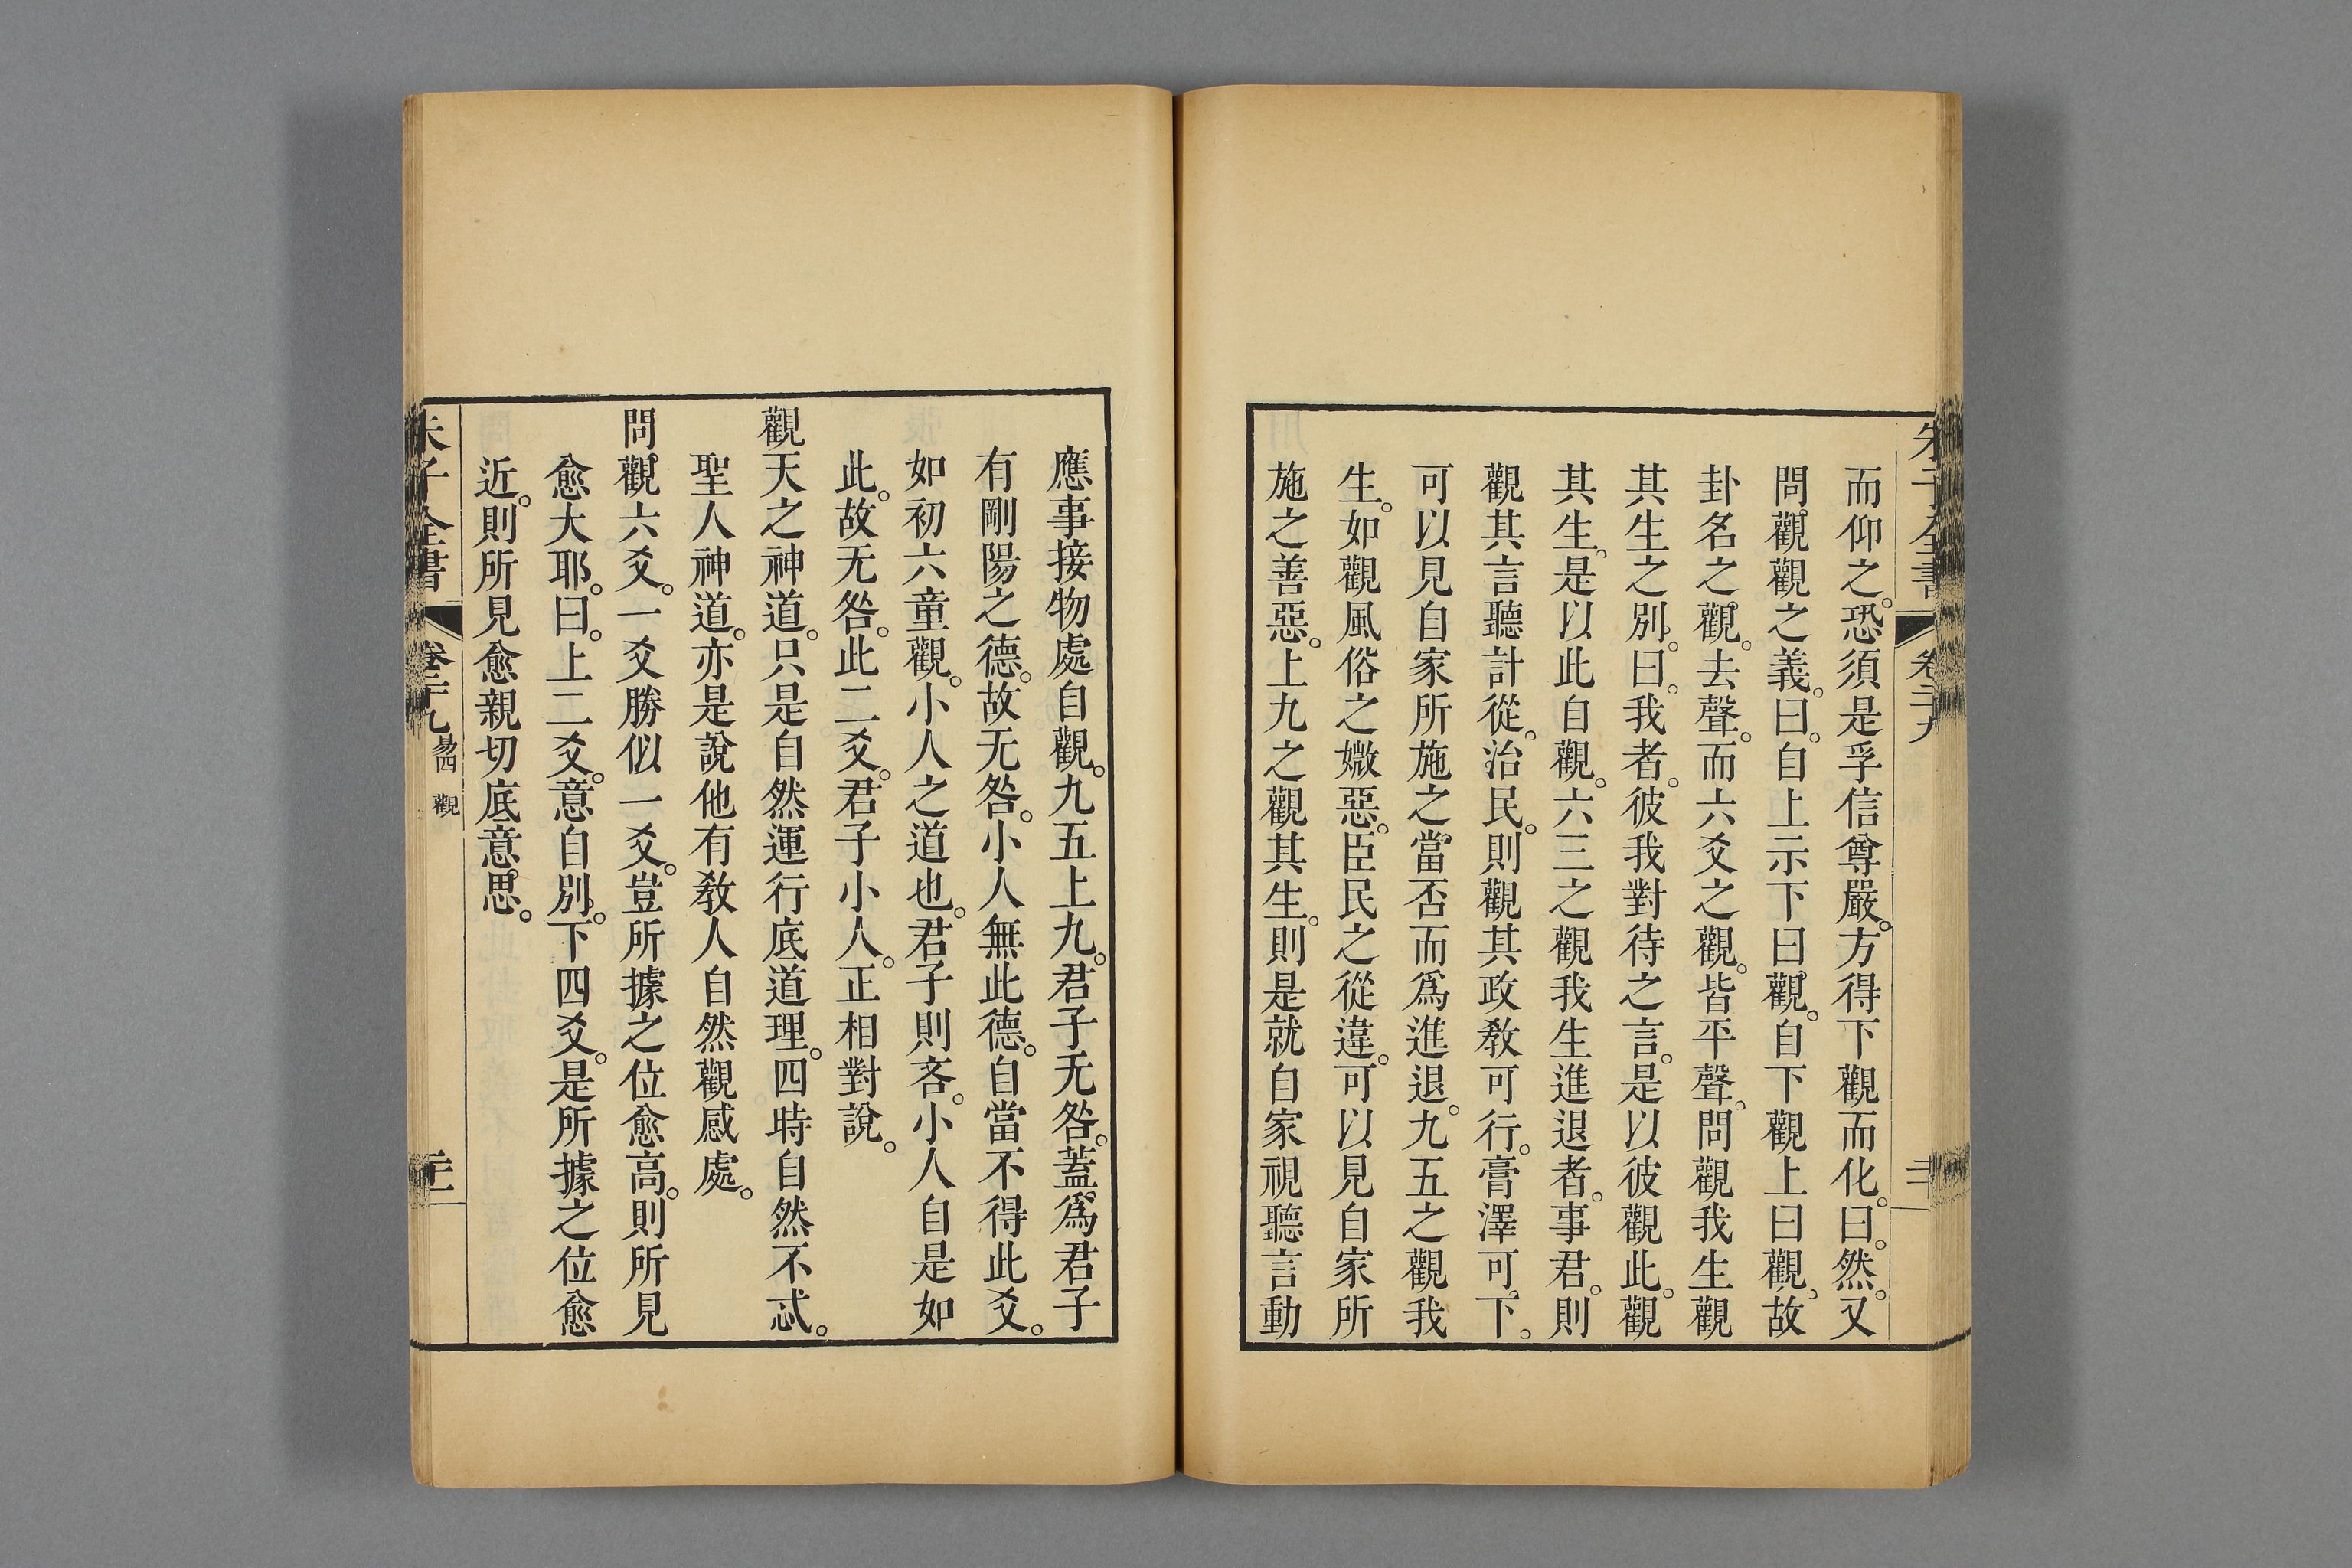 朱子全書 卷二十九
而仰之。恐須是孚信尊嚴。方得下觀而化。曰。然。又
問觀觀之義。曰。自上示下曰觀。自下觀上曰觀。故
卦名之觀。去聲。而六爻之觀。皆平聲。問觀我生觀
其生之別。曰。我者。彼我對待之言。是以彼觀此。觀
其生。是以此自觀。六三之觀我生進退者。事君。則
觀其言聽計從。治民。則觀其政教可行。膏澤可下。
可以見自家所施之當否而爲進退。九五之觀我
生。如觀風俗之媺惡。臣民之從違。可以見自家所
施之善惡。上九之觀其生。則是就自家視聽言動
應事接物處自觀。九五上九。君子无咎。蓋爲君子
有剛陽之德。故无咎。小人無此德。自當不得此爻。
如初六童觀。小人之道也。君子則吝。小人自是如
此。故无咎。此二爻。君子小人。正相對說。
觀天之神道。只是自然運行底道理。四時自然不忒。
聖人神道。亦是說他有教人自然觀感處。
問觀六爻。一爻勝似一爻。豈所據之位愈高。則所見
愈大耶。曰。上二爻。意自別。下四爻。是所據之位愈
近。則所見愈親切底意思。
朱子全書 卷二十九 易四 觀 二十二